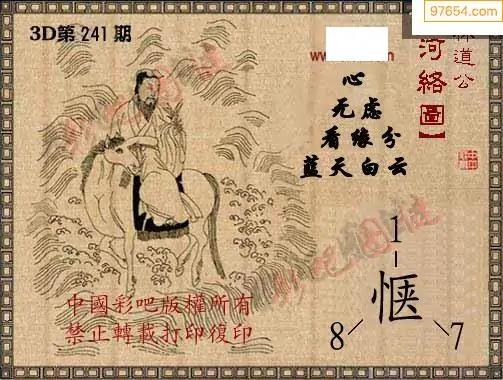 97654.com
3D第241期
www.
林道公
河絡圖】
心
无虑
看缘分
蓝天白云
1
惬
8
7
中國彩吧版權所有
禁止轉載打印復印